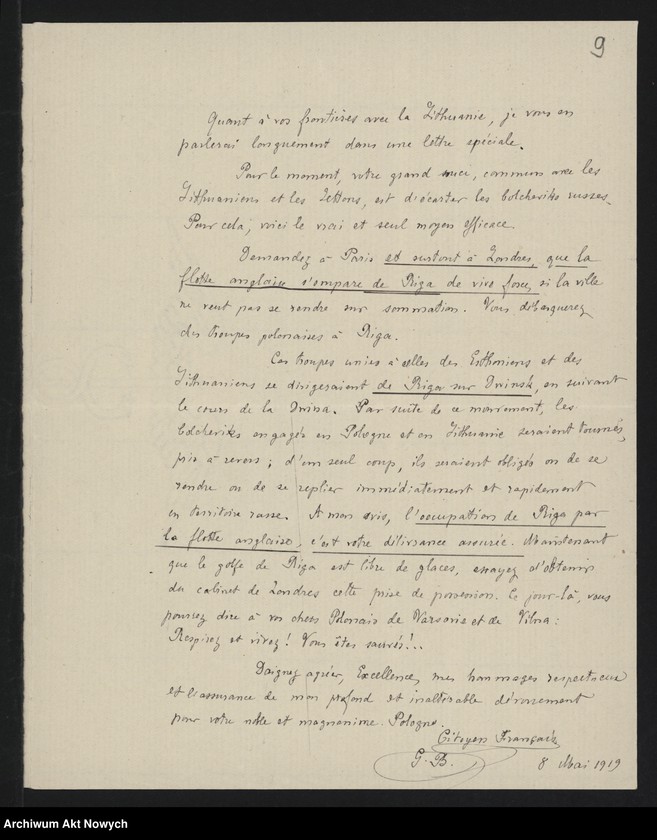 9
Quant à vos frontières avec la Lithuanie, je vous en
parlerai longuement dans une lettre spéciale.
Pour le moment, votre grand souci, commun avec les
Lithuaniens et les Lettons, est d'écarter les bolcheviks russes.
Pour cela, voici le vrai et seul moyen efficace.
Demandez à Paris et surtout à Londres, que la
flotte anglaise s'empare de Riga de vive force, si la ville
ne veut pas se rendre sur sommation. Vous débarquerez
des troupes polonaises à Riga.
Ces troupes unies à celles des Esthoniens et des
Lithuaniens se dirigeraient de Riga sur Dwinsk, en suivant
le cours de la Dwina. Par suite de ce mouvement, les
bolcheviks engagés en Pologne et en Lithuanie seraient tournés,
pris à revers ; d'un seul coup, ils seraient obligés ou de se
rendre ou de se replier immédiatement et rapidement
en territoire russe. A mon avis, l'occupation de Riga par
la flotte anglaise, c'est votre délivrance assurée. Maintenant
que le golfe de Riga est libre de glaces, essayez d'obtenir
du cabinet de Londres cette prise de possession. Ce jour-là, vous
pourrez dire à vos chers Polonais de Varsovie et de Vilna :
Respirez et vivez ! Vous êtes sauvés !..
Daignez agréer, Excellence, mes hommages respectueux
et l'assurance de mon profond et inaltérable dévouement
pour votre noble et magnanime Pologne.
Citoyen Français
G. B. 8 Mai 1919
Archiwum Akt Nowych